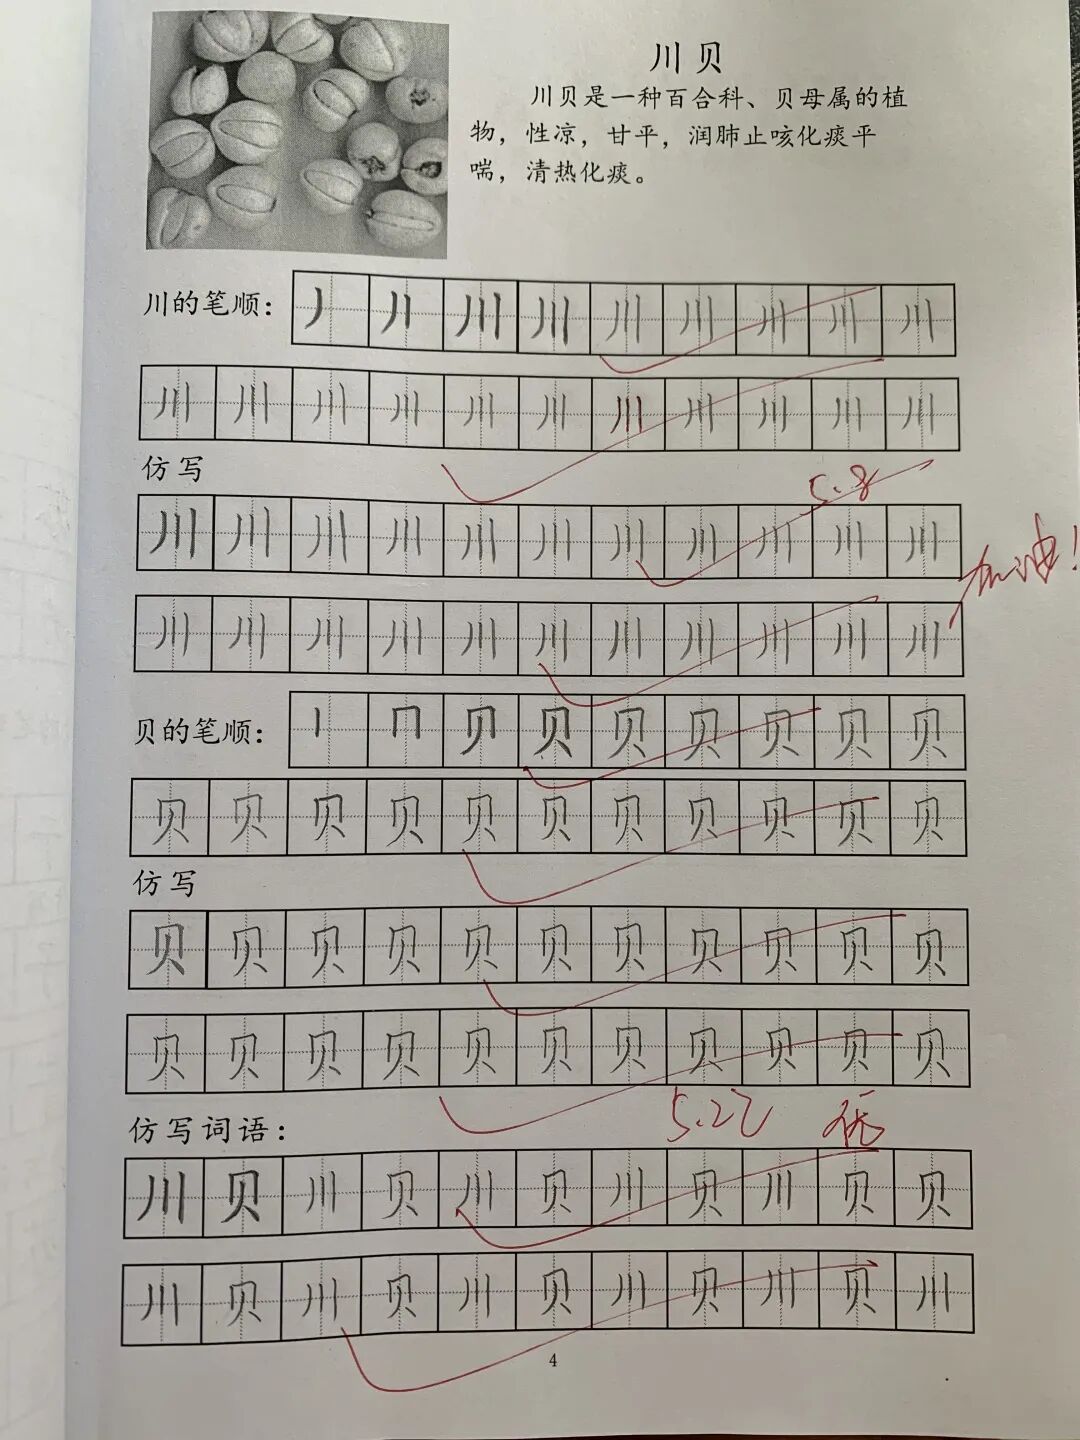 川贝
川贝是一种百合科、贝母属的植
物，性凉，甘平，润肺止咳化痰平
喘，清热化痰。
川的笔顺：丿 丿丨 川 川 川 川 川 川 川
川 川 川 川 川 川 川 川 川 川 川
仿写
5.8
川 川 川 川 川 川 川 川 川 川 川
加油！
川 川 川 川 川 川 川 川 川 川 川
贝的笔顺：丨 冂 贝 贝 贝 贝 贝 贝
贝 贝 贝 贝 贝 贝 贝 贝 贝 贝 贝
仿写
贝 贝 贝 贝 贝 贝 贝 贝 贝 贝 贝
贝 贝 贝 贝 贝 贝 贝 贝 贝 贝 贝
仿写词语：
5.22 优
川 贝 川 贝 川 贝 川 贝 川 贝 贝
川 贝 川 贝 川 贝 川 贝 川 贝 川
4